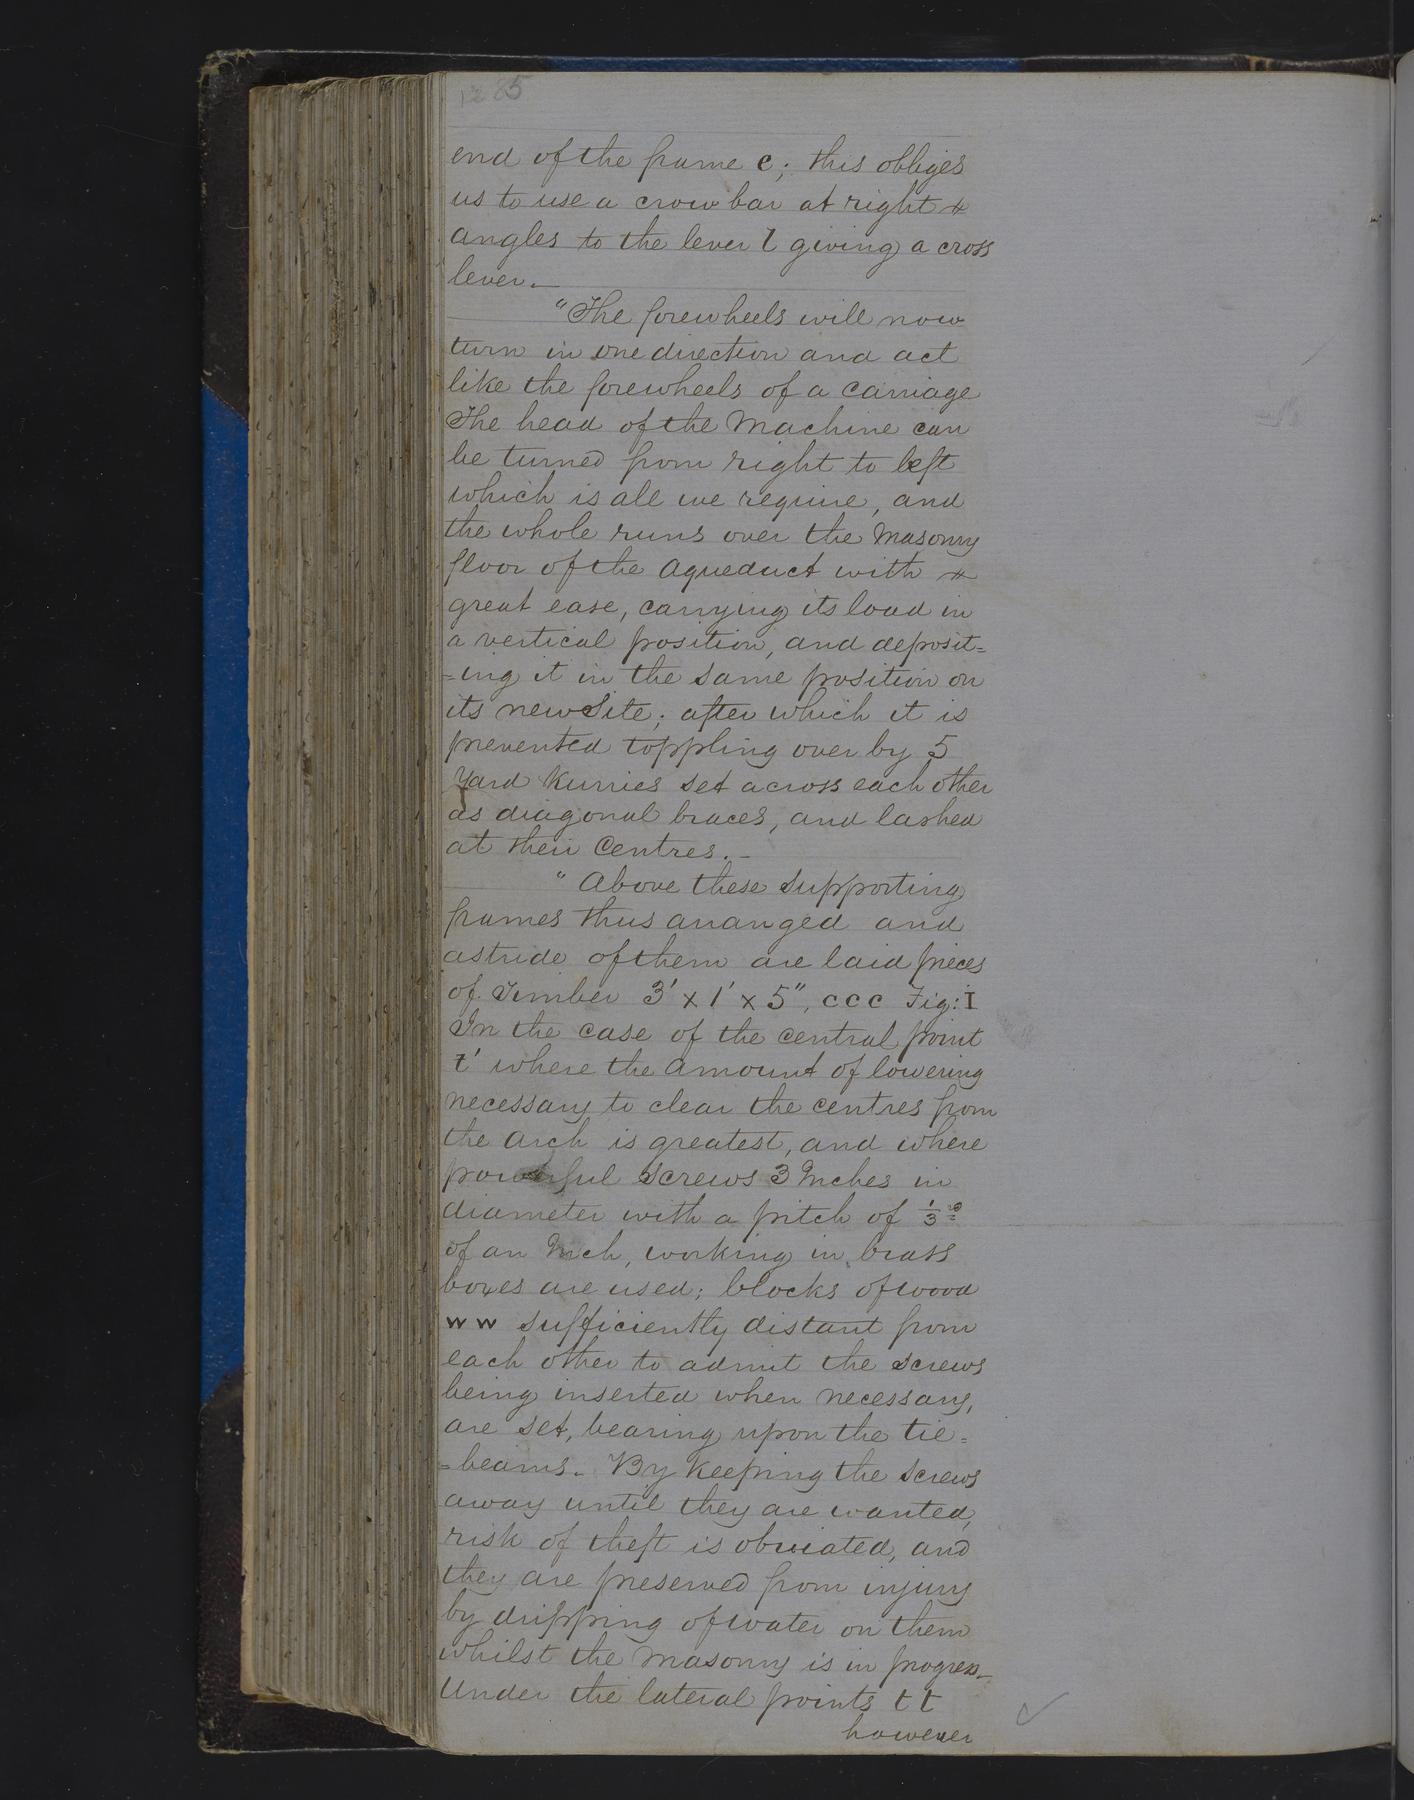 end of the frame c; this obliges
us to use a crow bar at right
angles to the lever l giving a cross
lever.—
"The forewheels will now
turn in one direction and act
like the forewheels of a carriage
The head of the Machine can
be turned from right to left
which is all we require, and
the whole runs over the Masonry
floor of the Aqueduct with
great ease, carrying its load in
a vertical position, and deposit=
=ing it in the same position on
its new Site; after which it is
prevented toppling over by 5
Yard Kurries set across each other
as diagonal braces, and lashed
at their Centres.—
"Above these supporting
frames thus arranged and
astride of them are laid pieces
of Timber 3' x 1' x 5", c c c Fig: I
In the case of the central point
t' where the amount of lowering
necessary to clear the centres from
the arch is greatest, and where
powerful screws 3 Inches in
diameter with a pitch of 1/3 rd
of an Inch, working in brass
boxes are used; blocks of wood
w w sufficiently distant from
each other to admit the screws
being inserted when necessary,
are set, bearing upon the tie=
=beams. By keeping the screws
away until they are wanted,
risk of theft is obviated, and
they are preserved from injury
by dripping of water on them
whilst the Masonry is in progress—
Under the lateral points t t
however